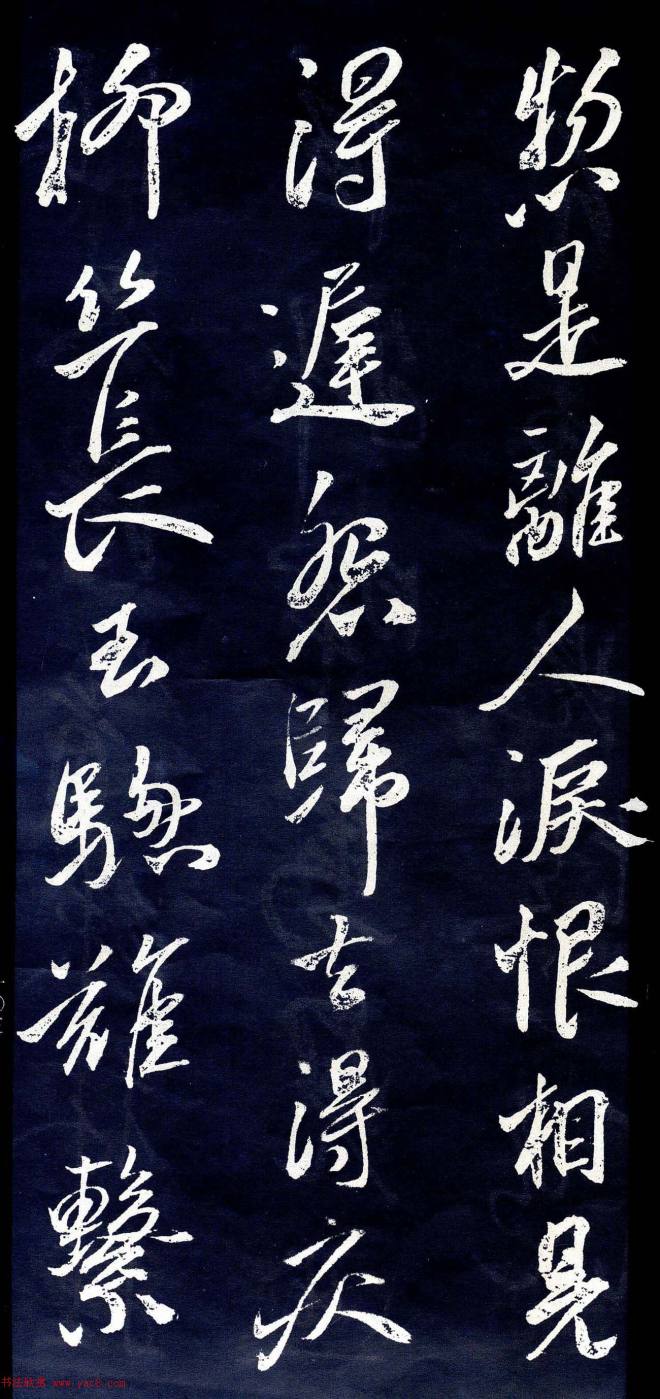 惣是離人淚恨相見
得遲怨歸去得疾
柳絲長玉驄難繫
书法欣赏 www.yac8.com